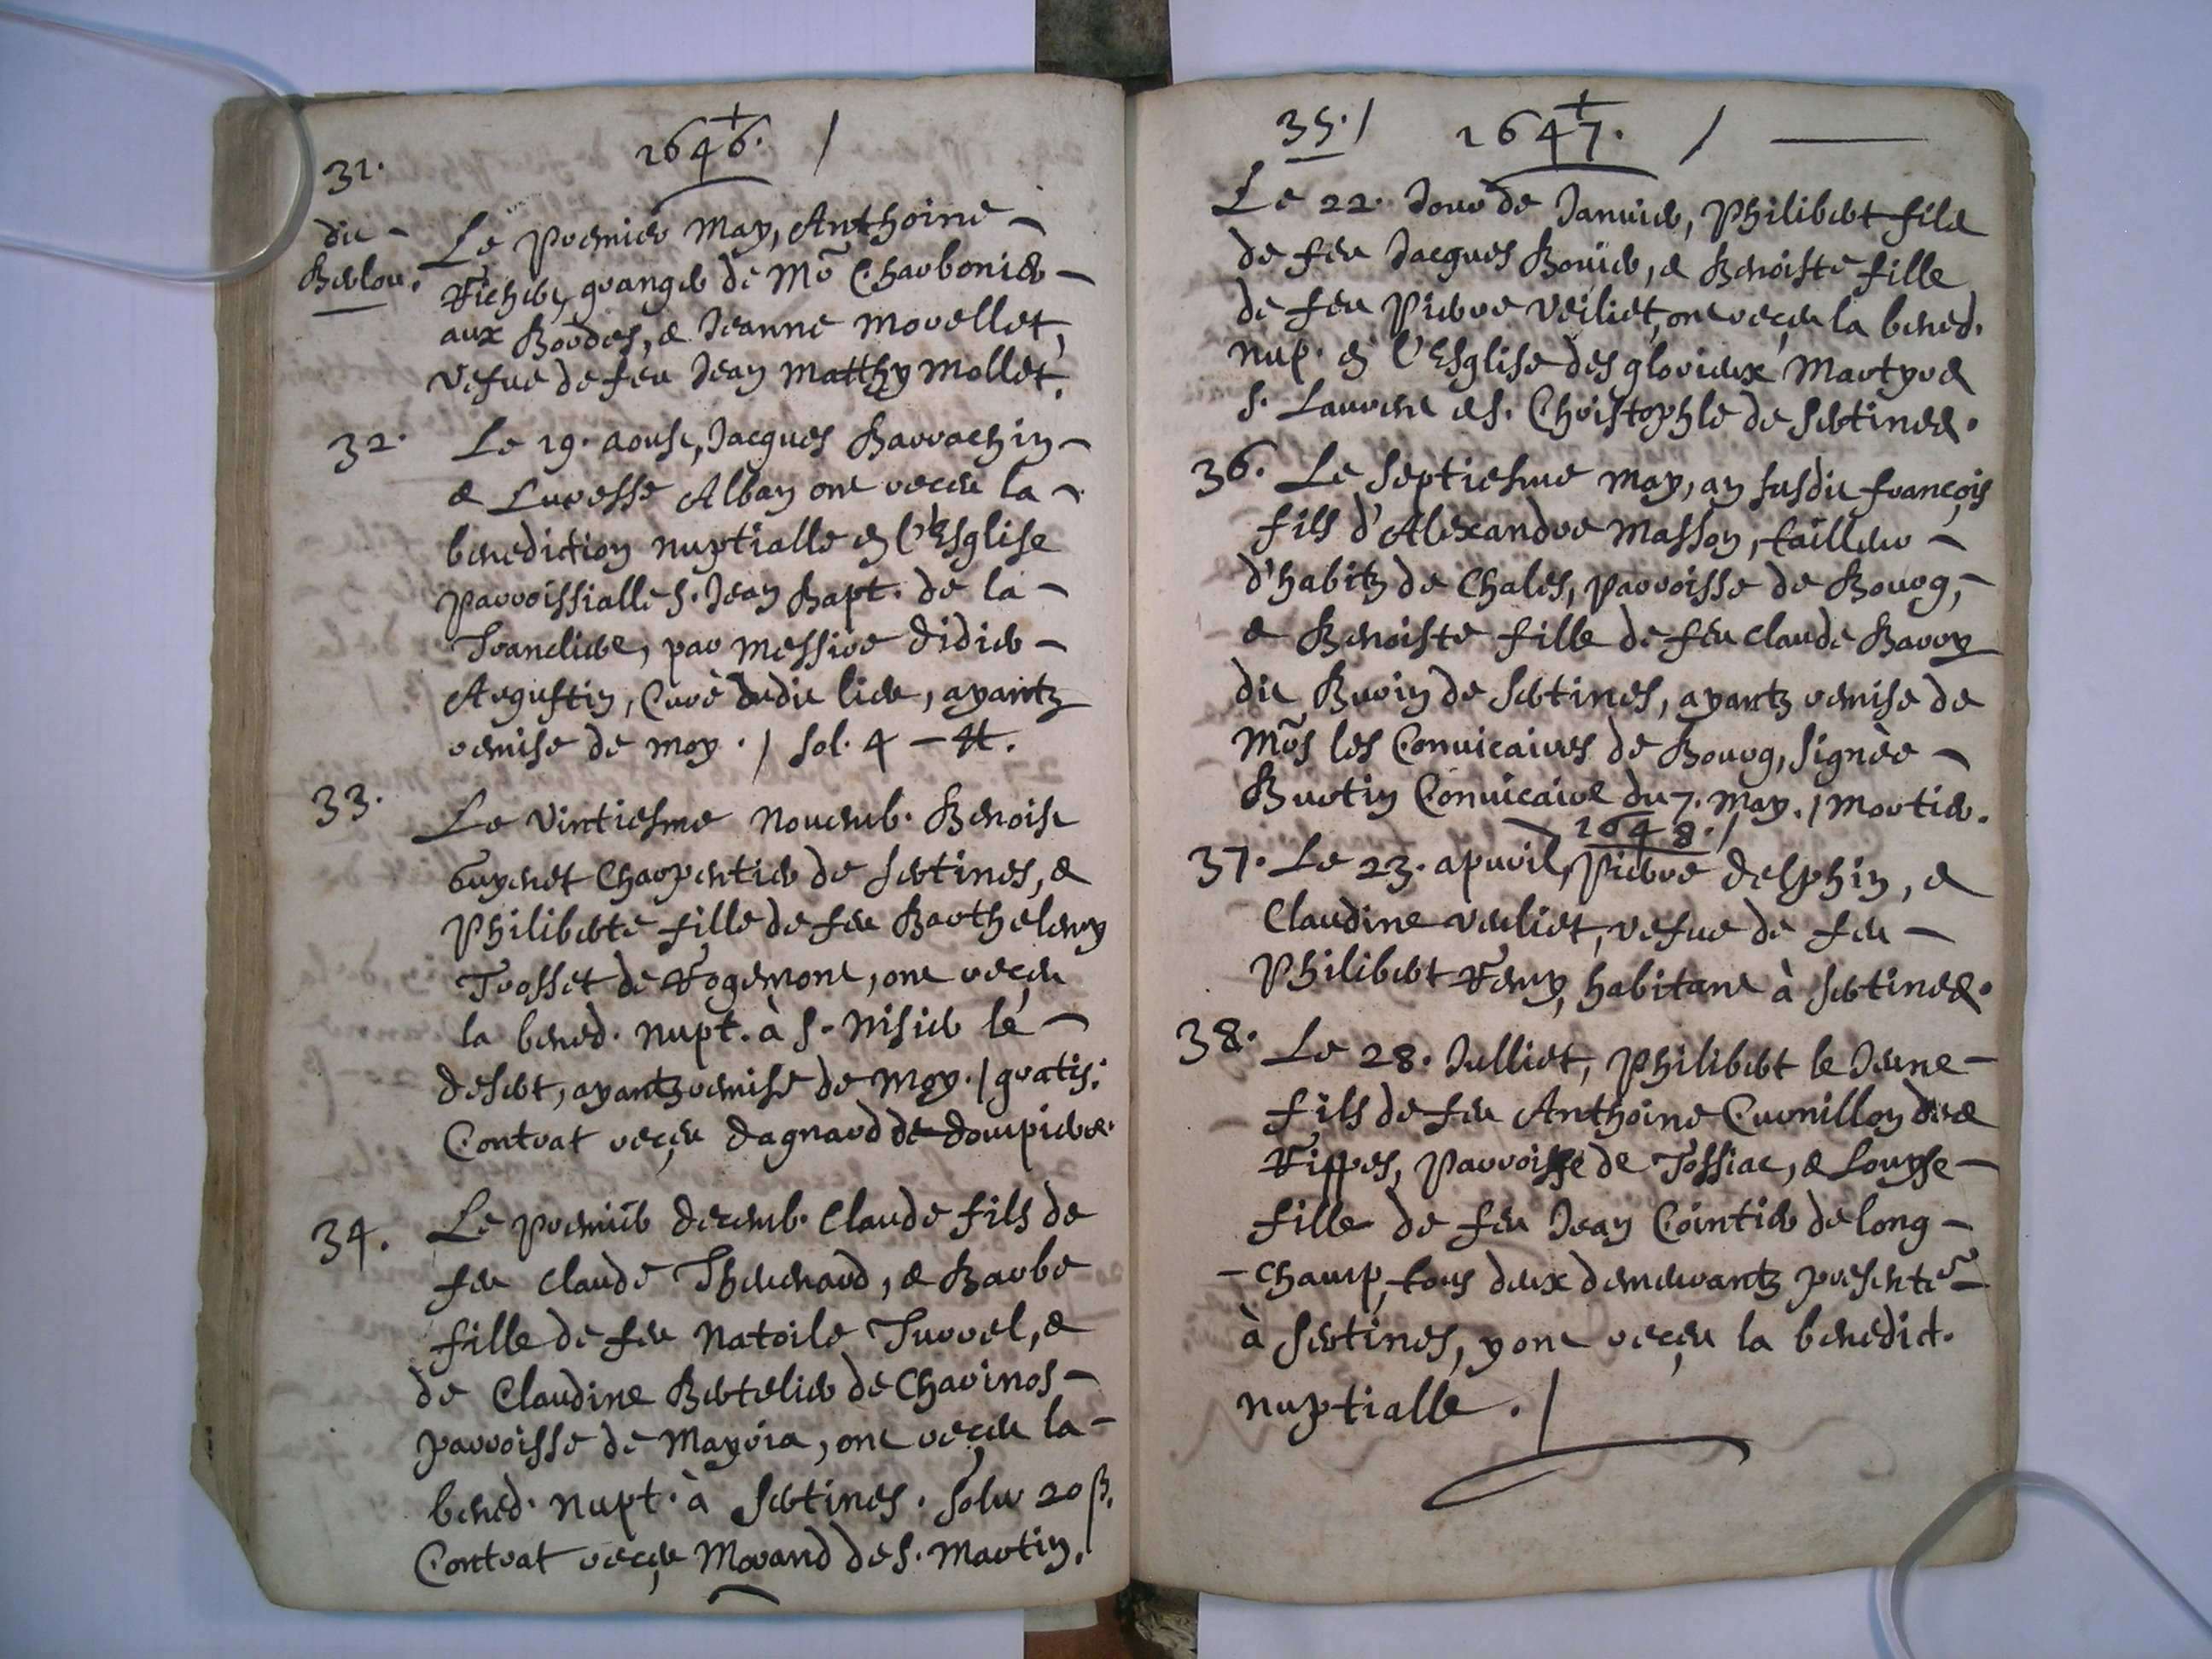 1646. /
31.
dit -
Berlou.
Le Premier May, Anthoine -
Richer, granger de Mr Charbonier -
aux Bordes, & Jeanne Morellet,
vefue de feu Jean Matthy Mollet.
32. Le 19. aoust, Jacques Barrachin -
& Lucresse Alban ont receu la -
benediction nuptialle en l'Esglise
Parroissialle S. Jean Bapt. de la -
Trancliere, par Messire Didier -
Augustin, Curè dudit lieu, ayantz
remise de moy. / sol. 4 - ff.
33. Le Vintiesme Nouemb. Benoist
Guyenet Charpentier de Sertines, &
Philiberte fille de feu Barthelemy
Trosset de Rogemont, ont reçeu
la bened. nupt. à S. Nisier le -
desert, ayantz remise de moy. / gratis.
Contrat reçeu Dagnaud de Dompierre.
34. Le premier decemb. Claude fils de
feu Claude Theuenard, & Barbe
fille de feu Natoile Turrel, &
de Claudine Bertelier de Chavinos -
parroisse de Mayria, ont reçeu la -
bened. nupt. à Sertines. Solu 20 ß.
Contrat reçeu Morand de S. Martin.
35. / 1647. /
Le 22. Jour de Januier, Philibert fils
de feu Jacques Boüier, & Benoiste fille
de feu Pierre Veiliet, ont reçeu la bened.
nup. en l'Esglise des glorieux Martyrs
S. Laurent & S. Christophle de Sertines.
36. Le Septiesme May, an susdit françois
fils d'Alexandre Masson, tailleur -
d'habitz de Chales, parroisse de Bourg, -
& Benoiste fille de feu Claude Barry
dit Burin de Sertines, ayantz remise de
Mrs les Conuicaires de Bourg, signèe -
Burtin Conuicaire du 7. May. / Mortier.
1648. /
37. Le 23. apuril, Pierre Delphin, &
Claudine Verliet, vefue de feu -
Philibert Remy, habitant à Sertines.
38. Le 28. Julliet, Philibert le Jeune -
fils de feu Anthoine Curnillon des
Rippes, Parroisse de Tossiat, & Louyse -
fille de feu Jean Cointier de long -
- champ, tous deux demeurantz presentemt
à Sertines, y ont reçeu la benedict.
nuptialle. /